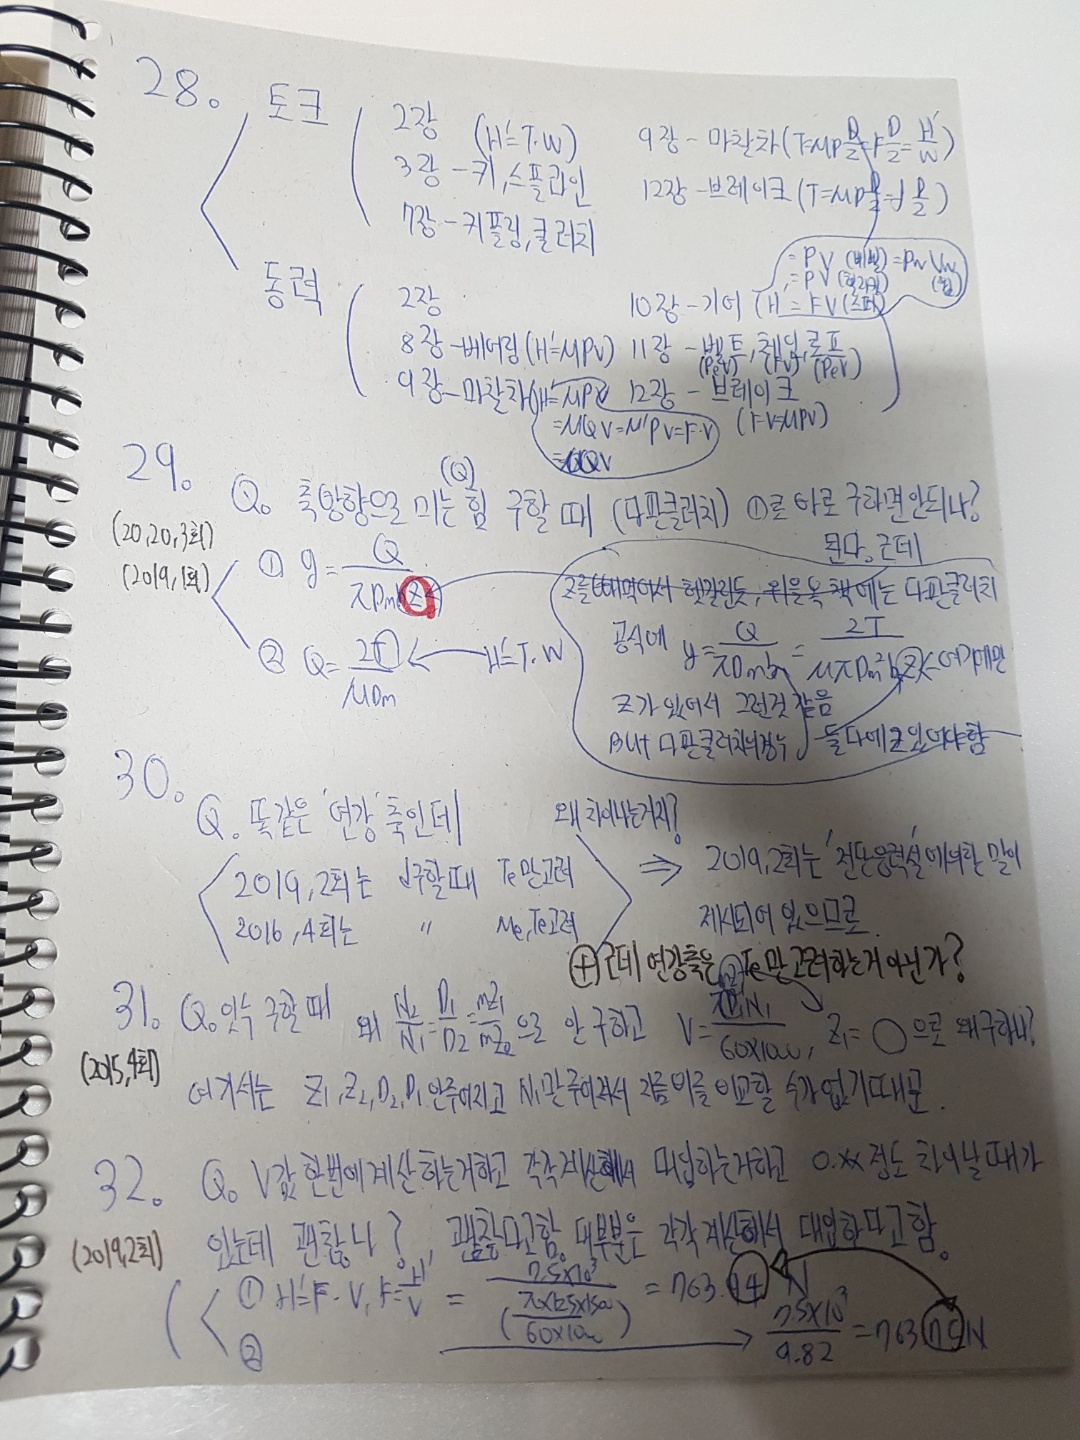 28.
토크
2장 (H'=T·W)
3장 - 키, 스플라인
7장 - 커플링, 클러치
9장 - 마찰차 (T=μP D/2=F D/2=H'/W)
12장 - 브레이크 (T=μP D/2=f D/2)
동력
2장
8장 - 베어링 (H'=μPV)
9장 - 마찰차 (H'=μPV
=μQV=μ'PV=F·V
10장 - 기어 (H'=FV (스퍼)
=PV (베벨)=PwVw (웜)
=PV (헬리컬)
11장 - 벨트, 체인, 로프
(PeV) (FV) (PeV)
12장 - 브레이크
(FV=μPV)
29.
(20,20,3회)
(2019,1회)
Q. 축방향으로 미는 힘 (Q) 구할 때 (다판클러치) ①로 바로 구하면 안되나?
된다. 근데
① q = Q/πDmbZ
② Q = 2T/μDm ← H'=T·W
Z를 빼먹어서 헷갈린듯, 위을복 책에는 다판클러치
공식에 q = Q/πDmb = 2T/μπDm²bZ ← 여기에만
Z가 있어서 그런것 같음
But 다판클러치의경우 둘다에 Z 있어야함
30.
Q. 똑같은 '연강'축인데 왜 차이나는거지?
2019,2회는 d구할때 Te만고려
2016,4회는 〃 Me,Te고려
⇒ 2019,2회는 '전단응력설'에의한 말이
제시되어 있으므로.
⊕ 근데 연강축은 Te만 고려하는거 아닌가?
31. Q. 잇수 구할 때 왜 N2/N1=D1/D2=mZ1/mZ2으로 안 구하고 V=πD1N1/60×1000, Z1=○으로 왜구하나?
(2015,4회)
여기서는 Z1,Z2,D2,D1 안주어지고 N1만 주어져서 지름 비를 비교할 수가 없기 때문.
32. Q. V값 한번에 계산하는거하고 각각계산해서 대입하는거하고 0.xx 정도 차이날 때가
(2019,2회)
있는데 괜찮나?, 괜찮다고함. 대부분은 각각 계산해서 대입한다고 함.
① H'=F·V, F=H'/V = 7.5×10³/(π×125×1500/60×1000) = 763.94 N
② → 7.5×10³/9.82 = 763.75N